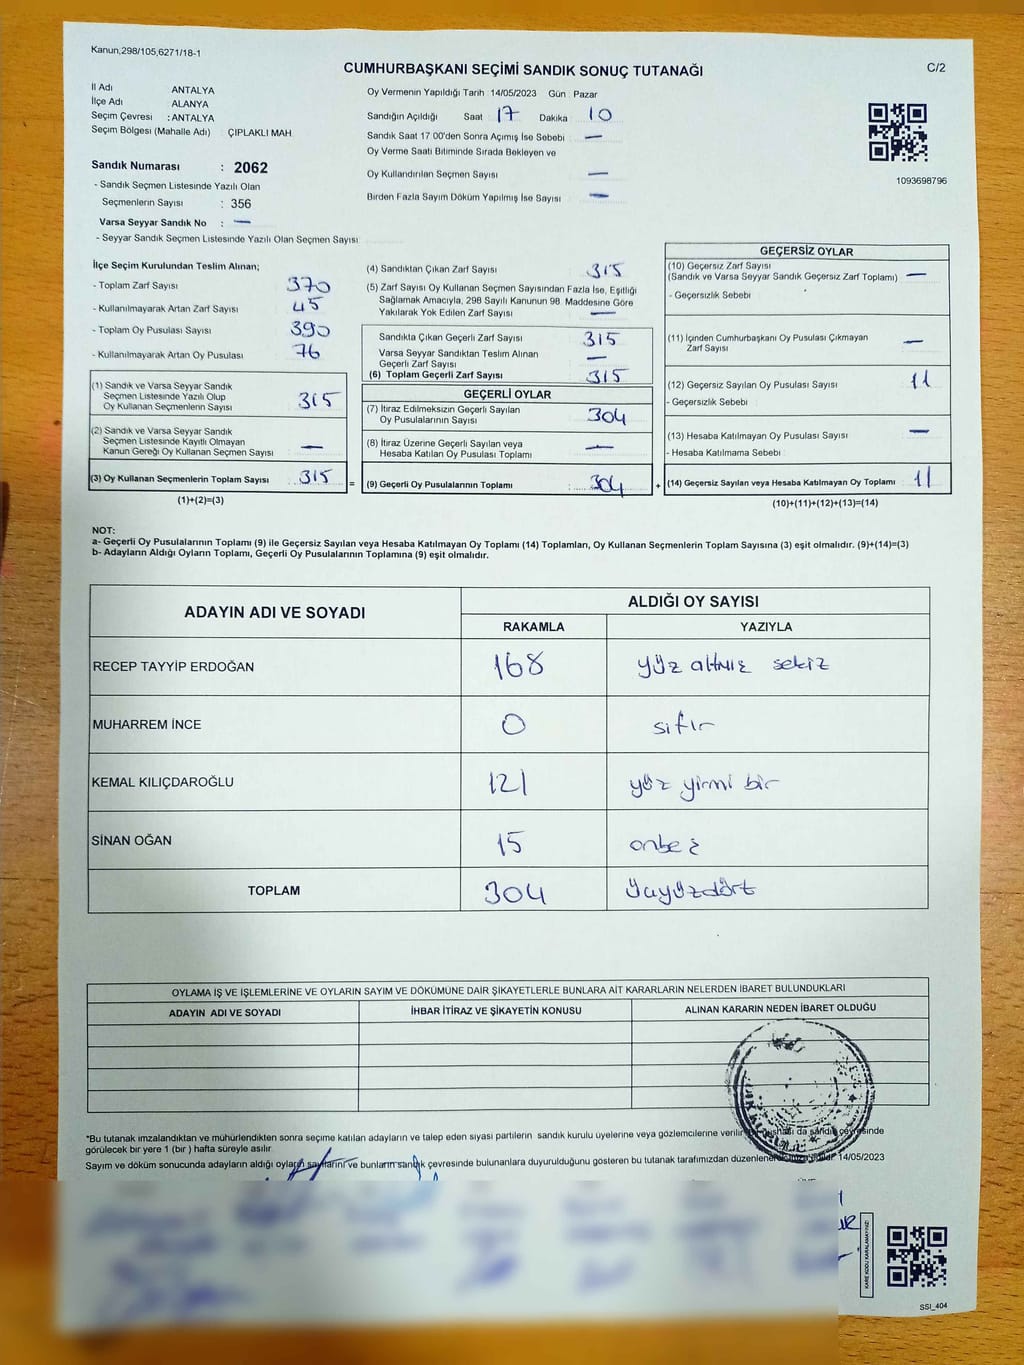 Kanun,298/105,6271/18-1
C/2
CUMHURBAŞKANI SEÇİMİ SANDIK SONUÇ TUTANAĞI
İl Adı ANTALYA
İlçe Adı ALANYA
Seçim Çevresi : ANTALYA
Seçim Bölgesi (Mahalle Adı) ÇIPLAKLI MAH
Sandık Numarası : 2062
- Sandık Seçmen Listesinde Yazılı Olan
Seçmenlerin Sayısı : 356
Varsa Seyyar Sandık No : —
- Seyyar Sandık Seçmen Listesinde Yazılı Olan Seçmen Sayısı
Oy Vermenin Yapıldığı Tarih : 14/05/2023 Gün : Pazar
Sandığın Açıldığı Saat 17 Dakika 10
Sandık Saat 17 00'den Sonra Açımış İse Sebebi —
Oy Verme Saati Bitiminde Sırada Bekleyen ve
Oy Kullandırılan Seçmen Sayısı —
Birden Fazla Sayım Döküm Yapılmış İse Sayısı —
1093698796
İlçe Seçim Kurulundan Teslim Alınan;
- Toplam Zarf Sayısı 370
- Kullanılmayarak Artan Zarf Sayısı 45
- Toplam Oy Pusulası Sayısı 390
- Kullanılmayarak Artan Oy Pusulası 76
(1) Sandık ve Varsa Seyyar Sandık
Seçmen Listesinde Yazılı Olup
Oy Kullanan Seçmenlerin Sayısı 315
(2) Sandık ve Varsa Seyyar Sandık
Seçmen Listesinde Kayıtlı Olmayan
Kanun Gereği Oy Kullanan Seçmen Sayısı —
(3) Oy Kullanan Seçmenlerin Toplam Sayısı 315 =
(1)+(2)=(3)
(4) Sandıktan Çıkan Zarf Sayısı 315
(5) Zarf Sayısı Oy Kullanan Seçmen Sayısından Fazla İse, Eşitliği
Sağlamak Amacıyla, 298 Sayılı Kanunun 98. Maddesine Göre
Yakılarak Yok Edilen Zarf Sayısı —
Sandıkta Çıkan Geçerli Zarf Sayısı 315
Varsa Seyyar Sandıktan Teslim Alınan
Geçerli Zarf Sayısı —
(6) Toplam Geçerli Zarf Sayısı 315
GEÇERLİ OYLAR
(7) İtiraz Edilmeksizin Geçerli Sayılan
Oy Pusulalarının Sayısı 304
(8) İtiraz Üzerine Geçerli Sayılan veya
Hesaba Katılan Oy Pusulası Toplamı —
(9) Geçerli Oy Pusulalarının Toplamı : 304 +
GEÇERSİZ OYLAR
(10) Geçersiz Zarf Sayısı
(Sandık ve Varsa Seyyar Sandık Geçersiz Zarf Toplamı) —
- Geçersizlik Sebebi
(11) İçinden Cumhurbaşkanı Oy Pusulası Çıkmayan
Zarf Sayısı —
(12) Geçersiz Sayılan Oy Pusulası Sayısı 11
- Geçersizlik Sebebi
(13) Hesaba Katılmayan Oy Pusulası Sayısı —
- Hesaba Katılmama Sebebi
(14) Geçersiz Sayılan veya Hesaba Katılmayan Oy Toplamı 11
(10)+(11)+(12)+(13)=(14)
NOT:
a- Geçerli Oy Pusulalarının Toplamı (9) ile Geçersiz Sayılan veya Hesaba Katılmayan Oy Toplamı (14) Toplamları, Oy Kullanan Seçmenlerin Toplam Sayısına (3) eşit olmalıdır. (9)+(14)=(3)
b- Adayların Aldığı Oyların Toplamı, Geçerli Oy Pusulalarının Toplamına (9) eşit olmalıdır.
ADAYIN ADI VE SOYADI ALDIĞI OY SAYISI
RAKAMLA YAZIYLA
RECEP TAYYİP ERDOĞAN 168 yüz altmış sekiz
MUHARREM İNCE 0 sıfır
KEMAL KILIÇDAROĞLU 121 yüz yirmi bir
SİNAN OĞAN 15 onbeş
TOPLAM 304 üçyüzdört
OYLAMA İŞ VE İŞLEMLERİNE VE OYLARIN SAYIM VE DÖKÜMÜNE DAİR ŞİKAYETLERLE BUNLARA AİT KARARLARIN NELERDEN İBARET BULUNDUKLARI
ADAYIN ADI VE SOYADI İHBAR İTİRAZ VE ŞİKAYETİN KONUSU ALINAN KARARIN NEDEN İBARET OLDUĞU
*Bu tutanak imzalandıktan ve mühürlendikten sonra seçime katılan adayların ve talep eden siyasi partilerin sandık kurulu üyelerine veya gözlemcilerine da sandık çevresinde
görülecek bir yere 1 (bir ) hafta süreyle asılır
Sayım ve döküm sonucunda adayların aldığı oyların sayılarını ve bunların sandık çevresinde bulunanlara duyurulduğunu gösteren bu tutanak tarafımızdan 14/05/2023
KARE KODU KARALAMAYINIZ!
SSI_404